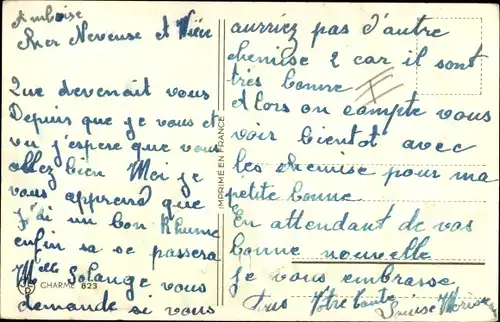 Amboise
Cher Neveuse et Nièce
Que devenait vous
Depuis que je vous et
vu j'espere que vous
allez bien Moi je
vous apprend que
J'ai un bon Rhume
enfin sa se passera
Melle Solange vous
demande si vous
CHARME 823
IMPRIMÉ EN FRANCE
aurriez pas d'autre
chemise 2 car il sont
très bonne
Alors on compte vous
voir bientot avec
les chemise pour ma
petite bonne
En attendant de vos
bonne nouvelle
je vous embrasse
Votre tante Louise